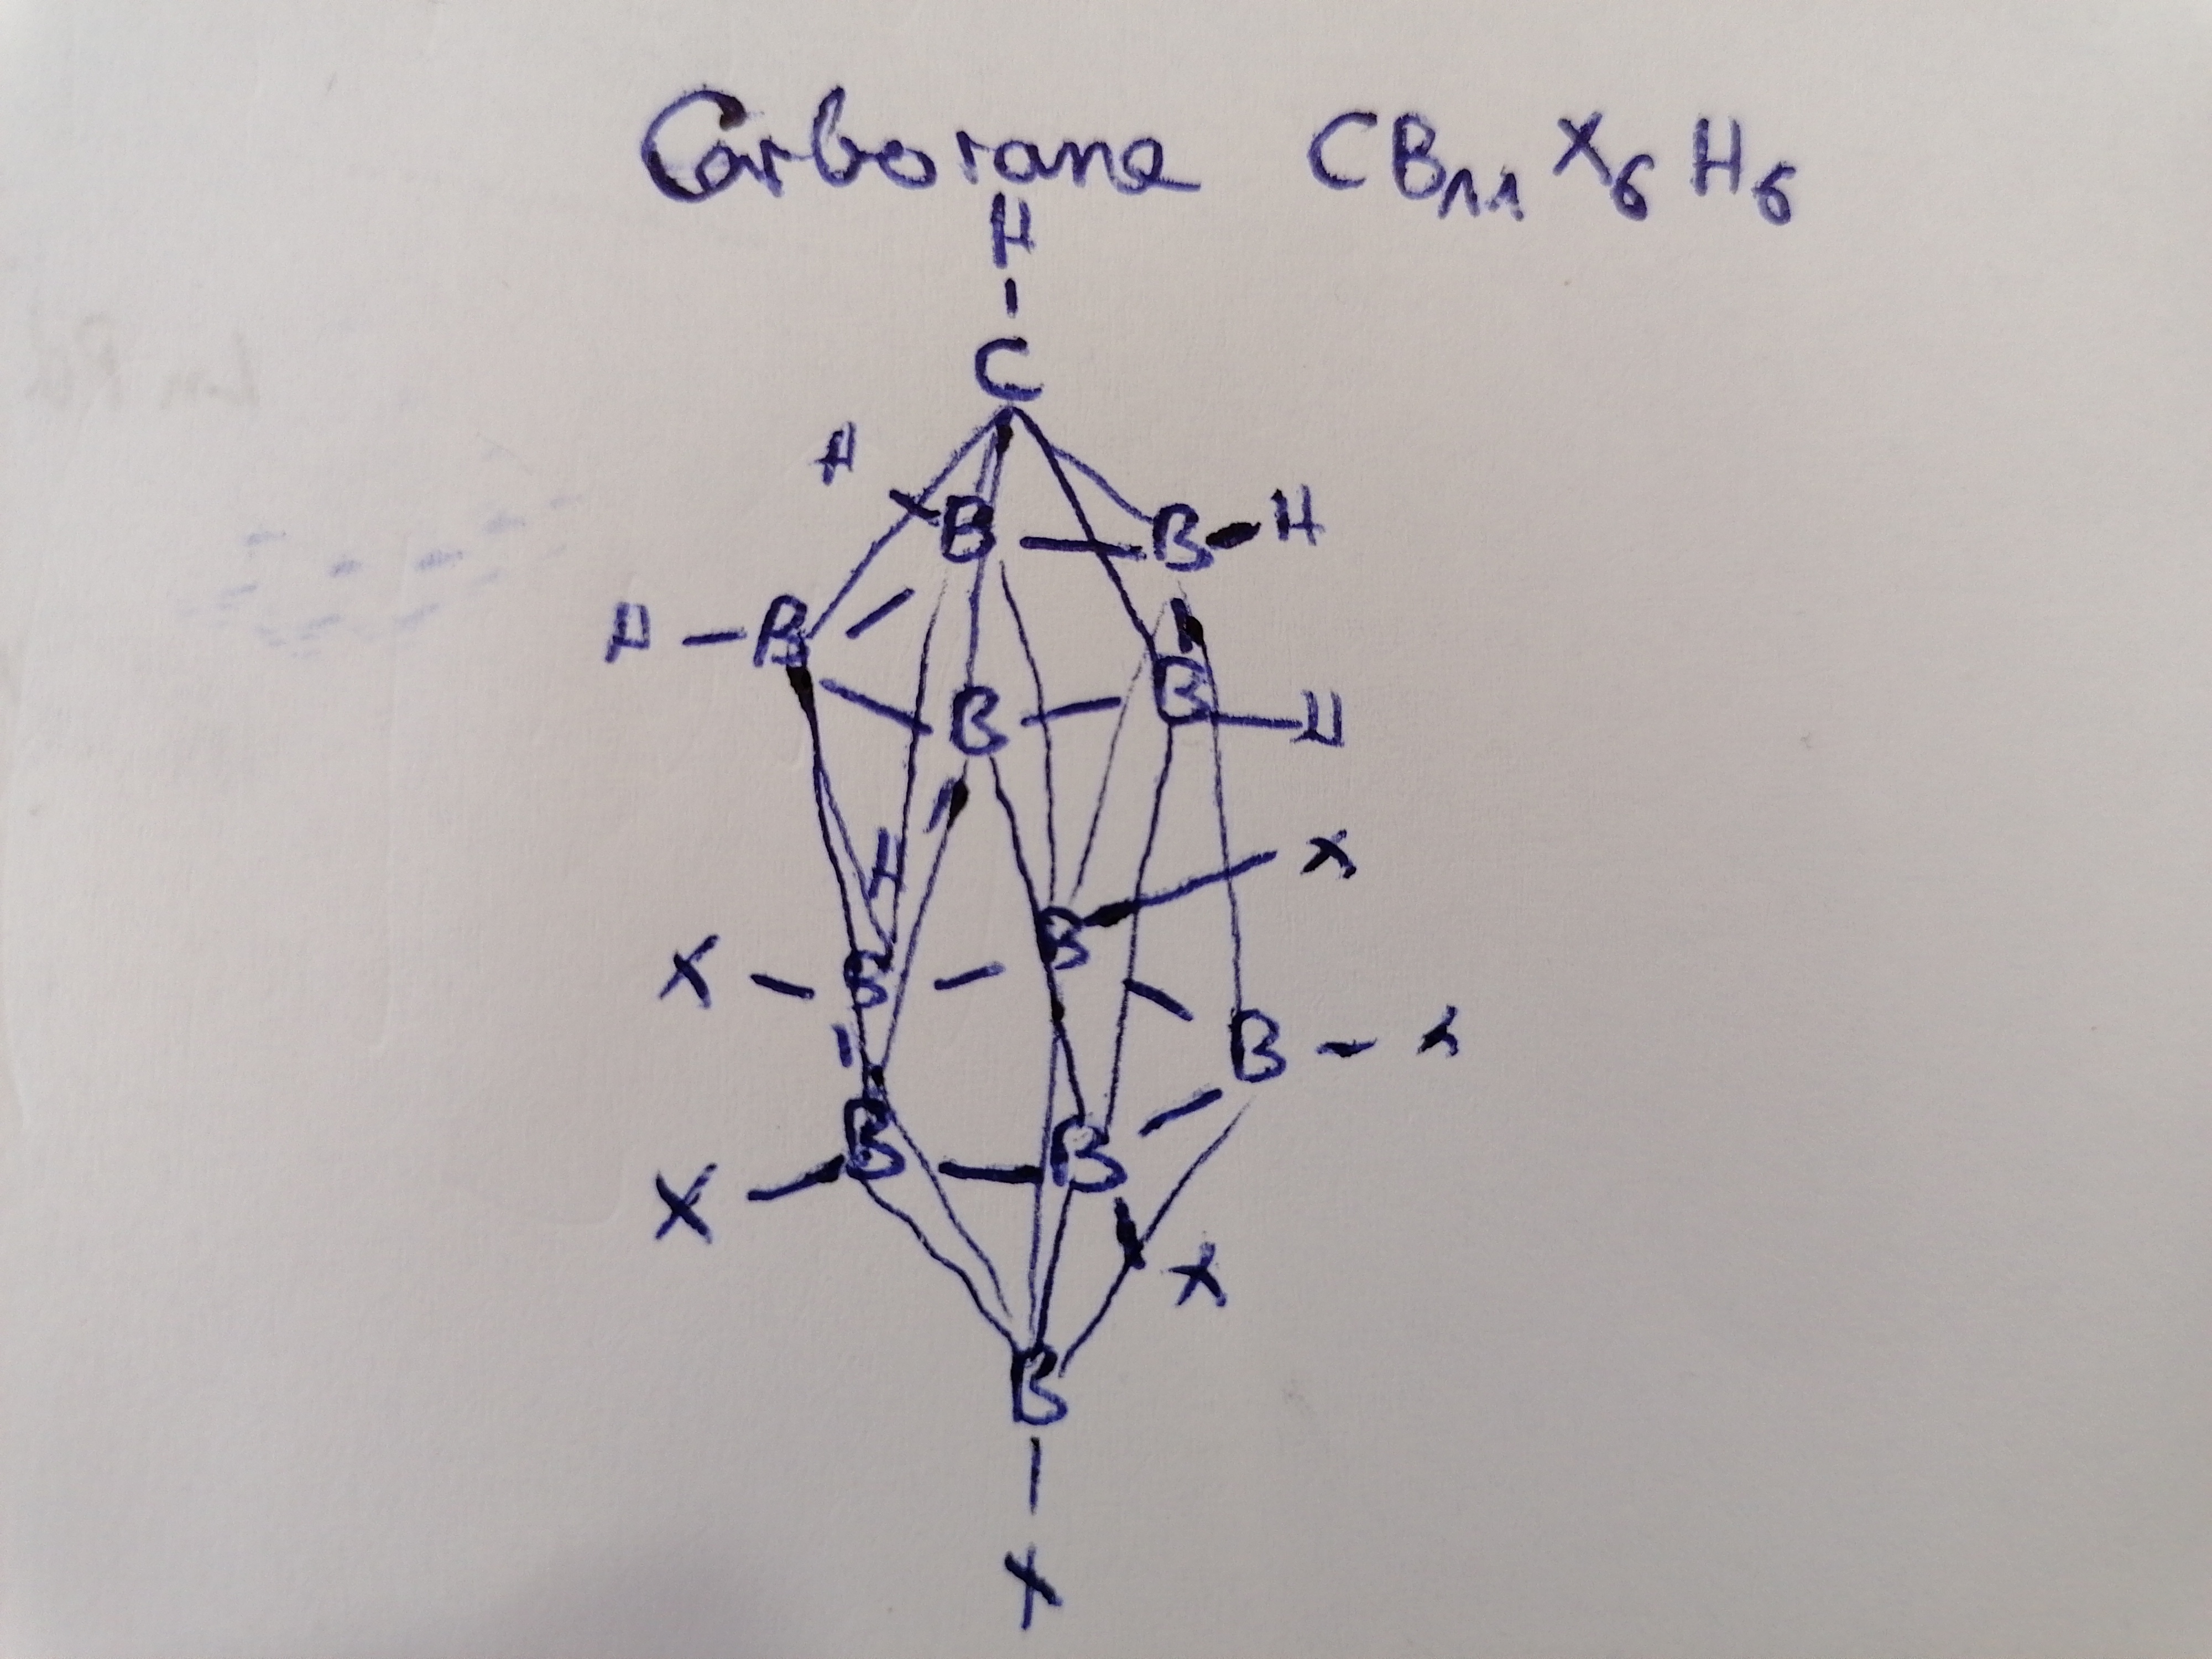 Carborane CB₁₁X₆H₆
H
C
H
B B H
H B
B B H
H
X
X B B
B X
B B
X
X
B
X